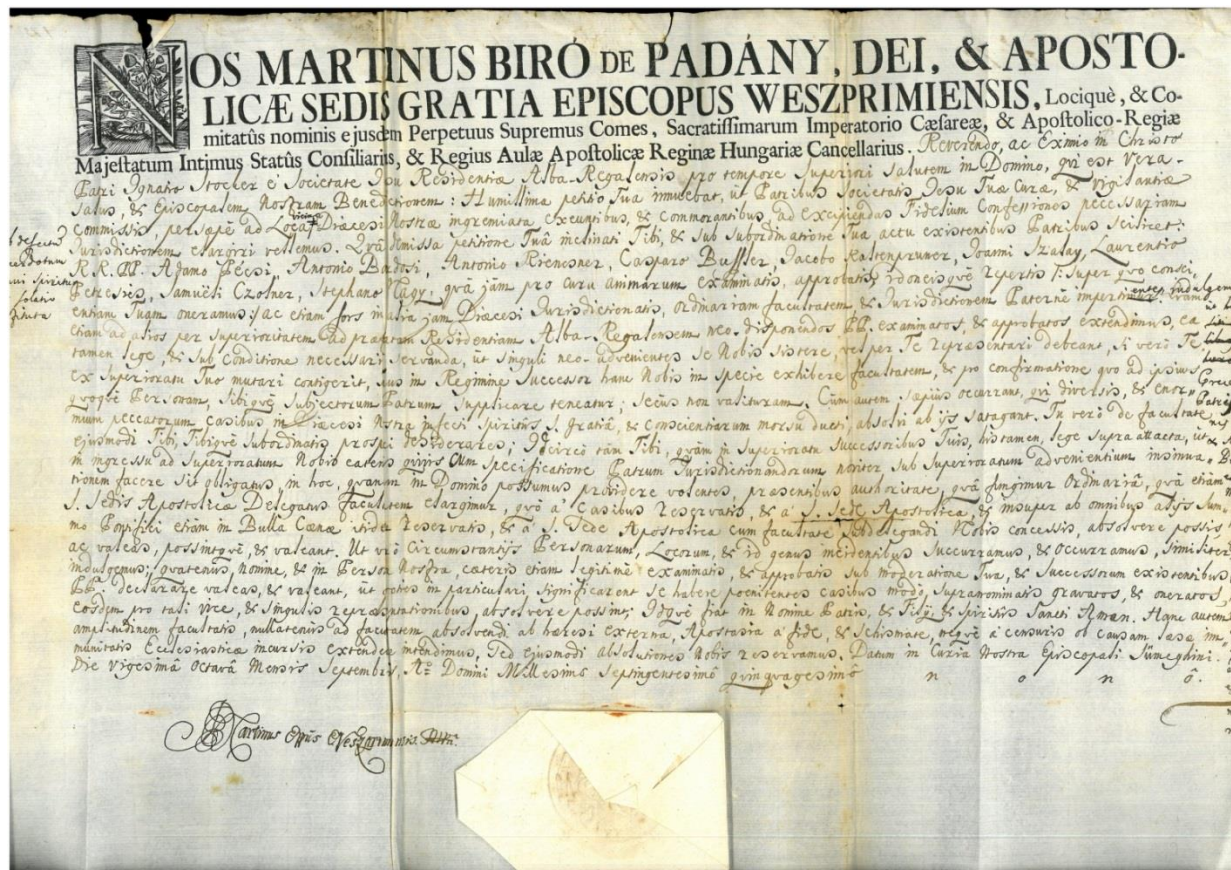 NOS MARTINUS BIRÓ DE PADÁNY, DEI, & APOSTO-
LICÆ SEDIS GRATIA EPISCOPUS WESZPRIMIENSIS, Lociquè, & Co-
mitatûs nominis ejusdem Perpetuus Supremus Comes, Sacratissimarum Imperatorio Cæsareæ, & Apostolico-Regiæ
Majestatum Intimus Statûs Consiliarius, & Regius Aulæ Apostolicæ Reginæ Hungariæ Cancellarius. Reverendo, ac Eximio in Christo
Patri Ignatio Stocher è Societate Jesu Residentiæ Alba-Regalensis pro tempore Superiori Salutem in Domino, qui est Vera
Salus, & Episcopalem Nostram Benedictionem: Humillima petitio Tua innuebat, ut Patribus Societatis Jesu Tuæ Curæ, & Vigilantiæ
Commissis, persæpè ad Loca vicina Diœcesi Nostræ ingremiata excuntibus, & commorantibus, ad excipiendas Fidelium Confessiones necessariam
Jurisdictionem elargiri vellemus. Quâ demissa petitione Tuâ inclinati Tibi, & sub subordinatione Tua actu existentibus Patribus scilicet:
R.R. PP. Adamo Pécsi, Antonio Antonio Casparo Jacobo Joanni Szalay, Laurentio
Samuëli Czobner, Stephano Nagy, quà jam pro cura animarum examinatis, approbatis, idoneisquè repertis /: Super quo consci-
entiam Tuam oneramus :/ ac etiam fors in alia jam Diœcesi Jurisdictionatis, ordinariam facultatem, & Jurisdictionem Paternè impertimur
etiam ad alios per Superioritatem ad præfatam Residentiam Alba-Regalensem neo-disponendos PP. examinatos, & approbatos extendimus, ea
tamen lege, & sub conditione necessariò servanda, ut singuli neo-advenientes se Nobis sistere, vel per Te repræsentari debeant, si verò Te
ex Superioratu Tuo mutari contigerit, Tuus in Regimine Successor hanc Nobis in specie exhibere facultatem, & pro confirmatione quo ad ipsius
quoquè Personam, sibiquè subjectorum Patrum supplicare teneatur; secùs non valituram. Cùm autem sæpius occurrant, qui diversis, & enor-
mium peccatorum casibus in Diœcesi Nostra infecti Spiritûs S. gratiâ, & conscientiarum morsu ducti, absolvi ab ijs satagant. Tu verò de facultate
ejusmodi Tibi, Tibiquè subordinatis prospici desiderares; Idcircò tàm Tibi, quàm in Superioratu Successoribus Tuis, his tamen, lege supra attacta, ut
in ingressu ad Superioratum Nobis eatenus cum specificatione Patrum Jurisdictionandorum noviter sub Superioratum advenientium insinua-
tionem facere sit obligatus, in hoc, quantum in Domino possumus providere volentes, præsentibus authoritate, quâ fungimur Ordinariâ, quâ etiam
S. Sedis Apostolicæ Delegatus facultatem elargimur, quò à Casibus reservatis, & à S. Sede Apostolica, & insuper ab omnibus alijs Sum-
mo Pontifici etiam in Bulla Cœnæ itidem reservatis, & à S. Sede Apostolica cum facultate subdelegandi Nobis concessis, absolvere possis,
ac valeas, possintquè, & valeant. Ut verò Circumstantijs Personarum, Locorum, & id genus incidentibus succurramus, & occurramus, similiter
indulgemus; quatenus, Nomine, & in Persona Nostra, cæteris etiam legitimè examinatis, & approbatis sub moderatione Tua, & Successorum existentibus
PP. declarare valeas, & valeant, ut in particulari significarint se habere pœnitentes casibus modò, supranominatis gravatos, & oneratos,
eosdem pro tali vice, & singulis repræsentationibus, absolvere possint; Idquè fiat in Nomine Patris, & Filij, & Spiritûs Sancti Amen. Hanc autem
amplitudinem facultatis, nullatenus ad facultatem absolvendi ab hæresi externa, Apostasia à fide, & Schismate, nequè à censuris ob causam læsæ im-
munitatis Ecclesiasticæ incursis extendere intendimus, sed ejusmodi absolutiones Nobis reservamus. Datum in Curia Nostra Episcopali Sümeghini.
Die Vigesimâ Octavâ Mensis Septembris, Aº Domini Millesimo Septingentesimô quinquagesimô n o n ô.
Martinus Eppûs Weszprimiensis